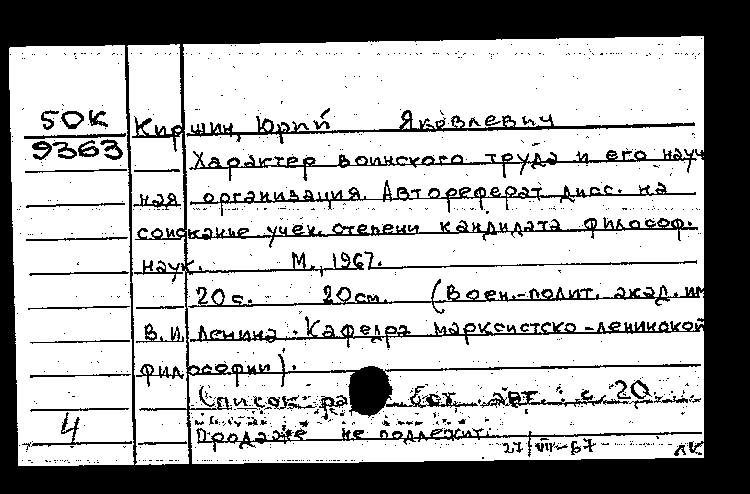 50К
9363
Киршин, Юрий Яковлевич
Характер воинского труда и его науч
ная организация. Автореферат дисс. на
соискание учен. степени кандидата философ.
наук. М., 1967.
20 с. 20 см. (Воен.-полит. акад. им
В.И. Ленина. Кафедра марксистско-ленинской
философии).
Список ра бот авт.: с. 20.
4
Продаже не подлежит.
27/VII-67 ЛК